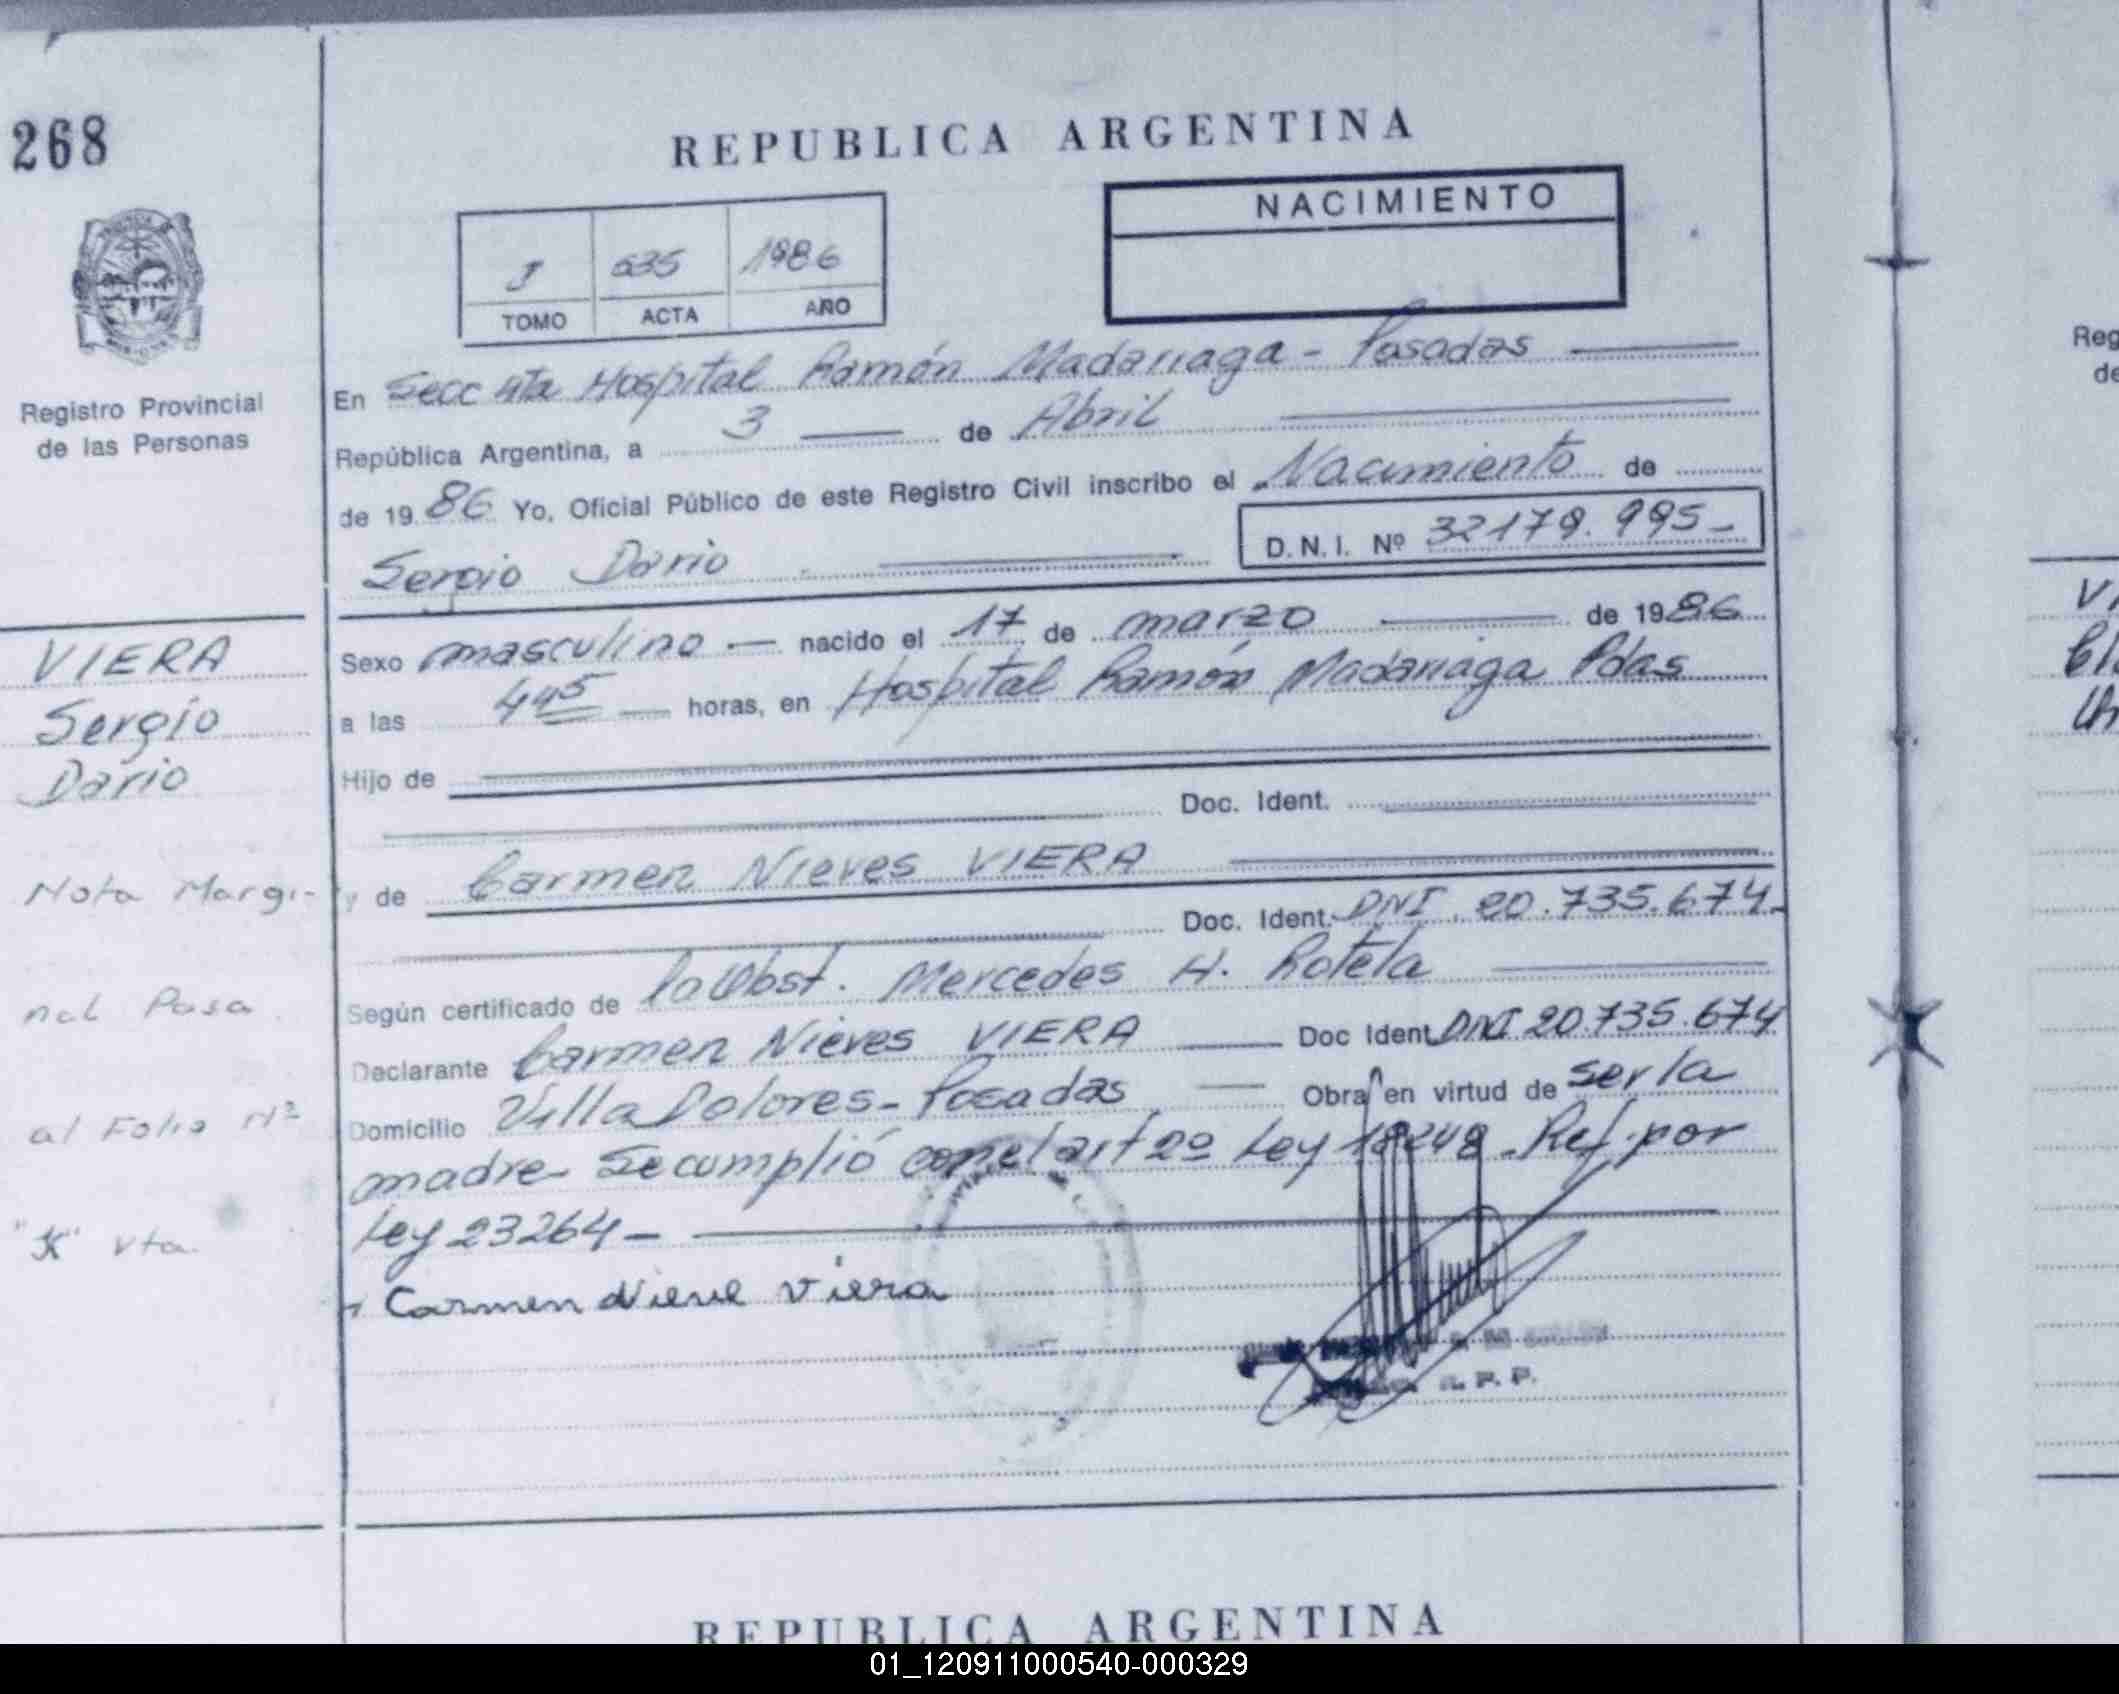 268
REPUBLICA ARGENTINA
NACIMIENTO
635 1986
TOMO ACTA AÑO
Registro Provincial
de las Personas
En Secc 4ta Hospital Ramón Madariaga - Posadas
República Argentina, a 3 de Abril
de 1986 Yo, Oficial Público de este Registro Civil inscribo el Nacimiento de
Sergio Dario D.N.I. Nº 32179.995-
VIERA
Sergio
Dario
Sexo masculino — nacido el 17 de marzo de 1986
a las 4 45 — horas, en Hospital Ramón Madariaga Pdas
Hijo de
Doc. Ident.
y de Carmen Nieves VIERA
Doc. Ident. DNI 20.735.674-
Según certificado de la Obst. Mercedes H. Rotela
Declarante Carmen Nieves VIERA Doc Ident DNI 20.735.674
Domicilio Villa Dolores - Posadas — Obra en virtud de ser la
madre- Se cumplió con el art 2º Ley 18248 - Ref. por
Ley 23264 -
Carmen Nieve Viera
Nota Margi-
nal Pasa
al Folio Nº
"K" vta.
R. P. P.
Reg
de
VI
REPUBLICA ARGENTINA
01_120911000540-000329